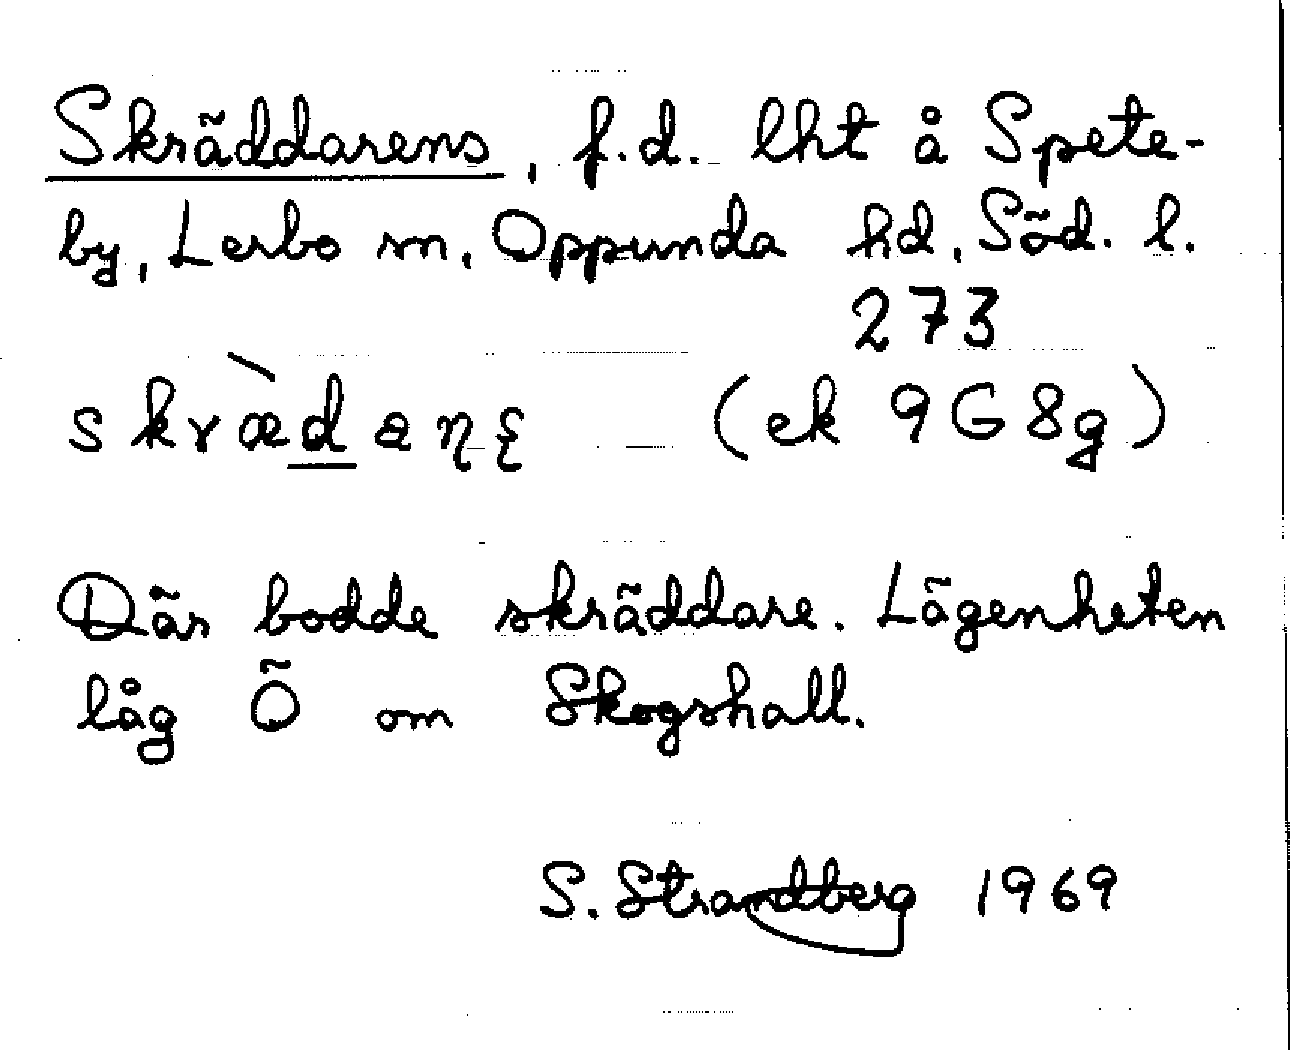 Skräddarens, f.d. lht å Spete-
by, Lerbo sn, Oppunda hd, Söd. l.
273
skræ̀daɳʂ (ek 9G8g)
Där bodde skräddare. Lägenheten
låg Ö om Skogshall.
S. Strandberg 1969